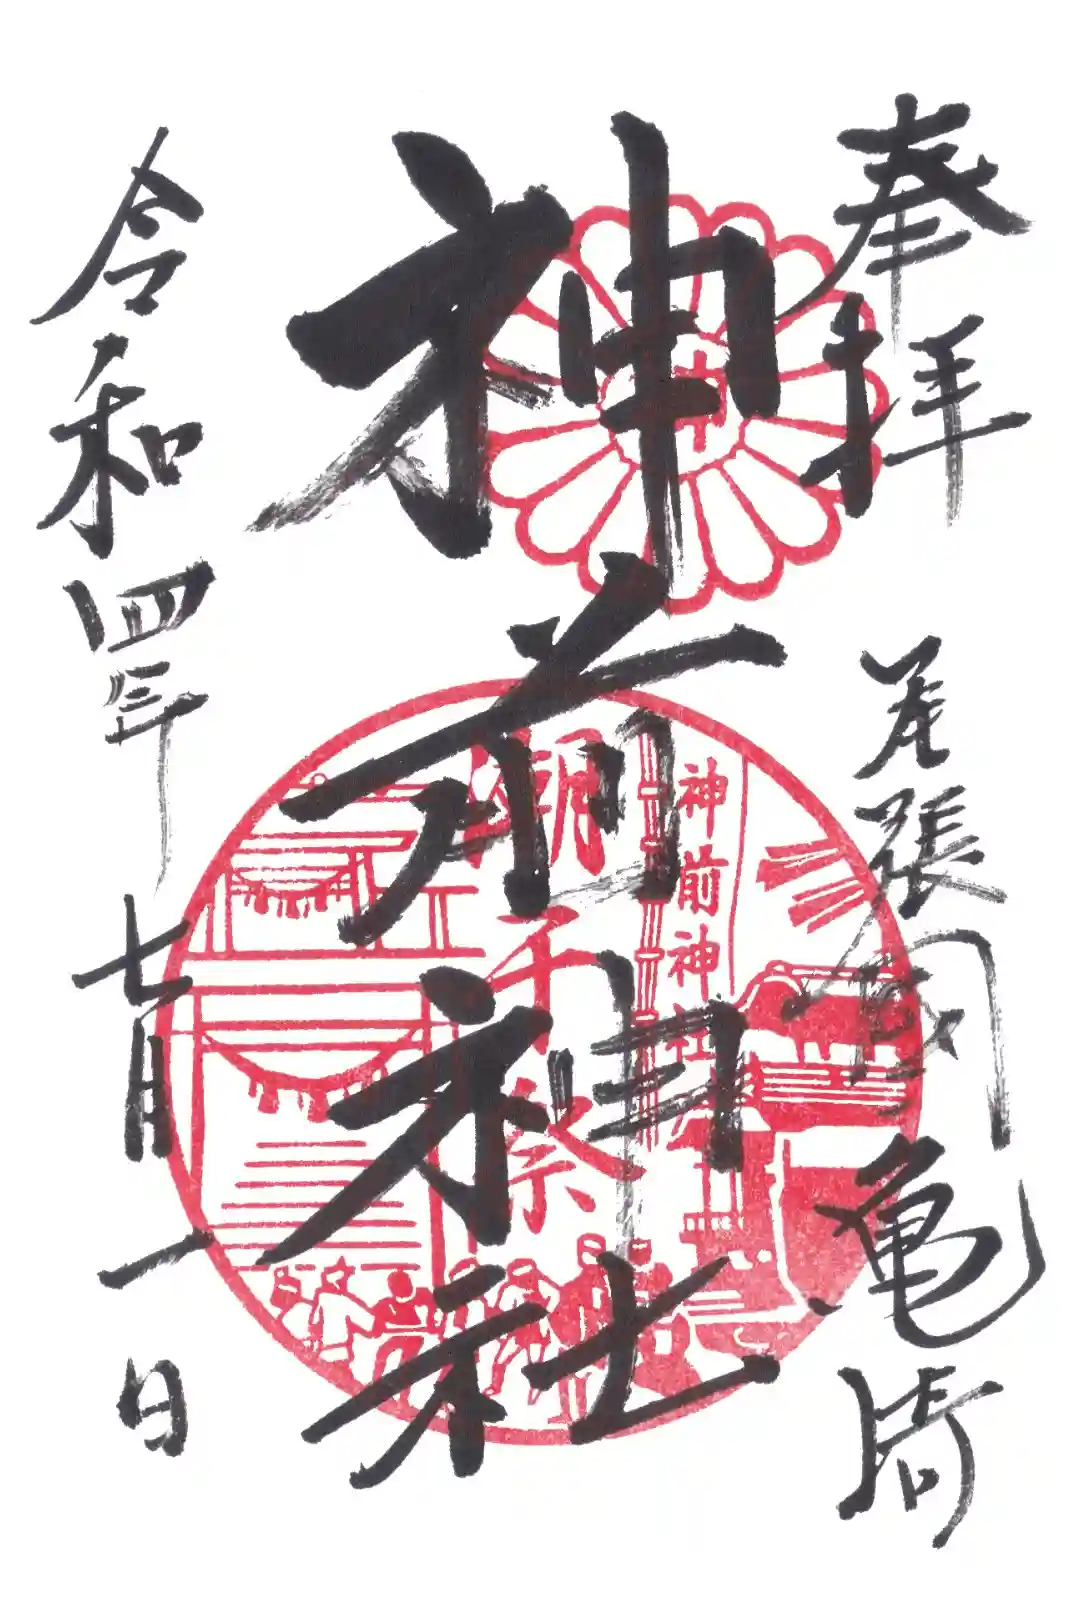 奉拝
尾張国亀崎
神前神社
令和四年七月一日
潮干祭
神前神社